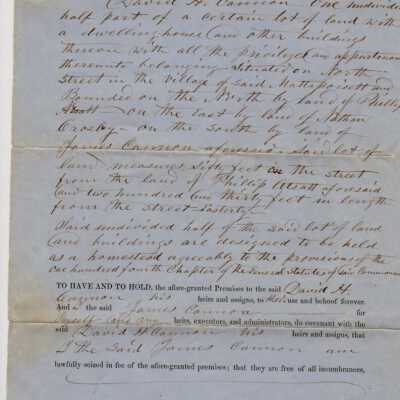 David H. Cannon One undivided
half part of a certain lot of land with
a dwelling house and other buildings
thereon with all the priviledges and appurtenan
thereunto belonging situated on North
Street in the Village of said Mattapoisett and
Bounded on the North by land of Phillip
Atsatt on the East by land of Nathan
Crosby on the South by land of
James Cannon aforesaid Said lot of
land measures Sixty feet on the street
from the land of Phillip Atsatt aforesaid
and two hundred and thirty feet in length
from the street Easterly
Said undivided half of the said lot of land
and buildings are designed to be held
as a homestead agreably to the provisions of the
one hundred fourth Chapter of the General Statutes of Commonwea
TO HAVE AND TO HOLD, the afore-granted Premises to the said David H
Cannon his heirs and assigns, to their use and behoof forever.
And I the said James Cannon for
myself and my heirs, executors, and administrators, do covenant with the
said David H Cannon his heirs and assigns, that
I the Said James Cannon am
lawfully seized in fee of the afore-granted premises; that they are free of all incumbrances,